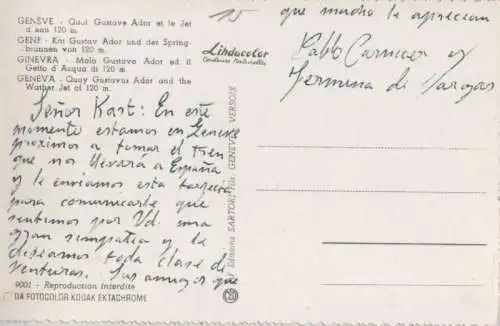 GENÈVE - Quai Gustave Ador et le Jet
d'eau 120 m
GENF - Kai Gustav Ador und der Spring-
brunnen von 120 m.
GINEVRA - Molo Gustavo Ador ed il
Getto d'Acqua di 120 m.
GENEVA - Quay Gustavus Ador and the
Water Jet of 120 m.
Señor Kast: En este
momento estamos en Geneve
proximos a tomar el tren
que nos llevará a España
y le enviamos esta tarjeta
para comunicarle que
sentimos por Vd. una
gran simpatia y le
deseamos toda clase de
venturas. Sus amigos que
9001 - Reproduction Interdite
DA FOTOCOLOR KODAK EKTACHROME
Lindacolor
15
que mucho le aprecian
Pablo Carnicer y
Germina de Vargas
Editions SARTORI Fils, GENÈVE - VERSOIX